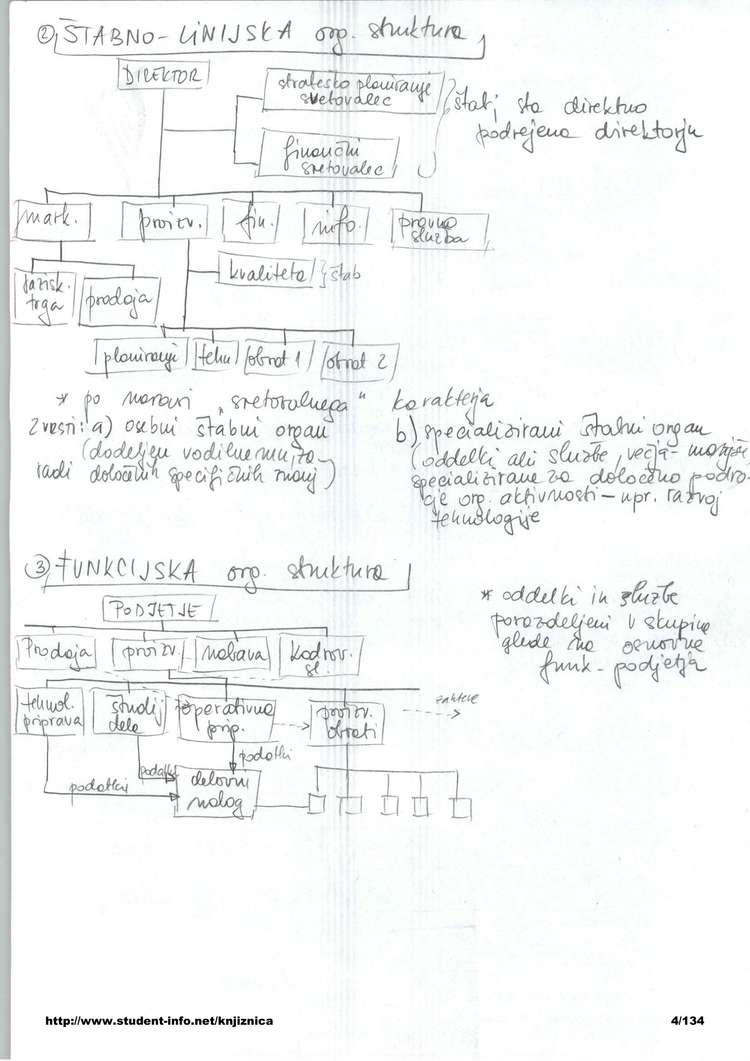 ② ŠTABNO-LINIJSKA org. struktura
DIREKTOR
strateško planiranje
svetovalec
finančni
svetovalec
štab, sta direktno
podrejena direktorju
mark.
proizv.
fin.
info.
pravna
služba
kvaliteta } štab
razisk.
trga
prodaja
planiranje
tehn
obrat 1
obrat 2
* po naravi „svetovalnega" karakterja
zvrsti: a) osebni štabni organ
(dodeljen vodilnemu, za-
radi določnih specifičnih znanj)
b) specializirani štabni organ
(oddelki ali službe, večja - manjše
specializirane za določeno podro-
čje org. aktivnosti – npr. razvoj
tehnologije
③ FUNKCIJSKA org. struktura
PODJETJE
Prodaja
proizv.
nabava
Kadrov.
sl.
* oddelki in službe
porazdeljeni v skupine
glede na osnovne
funk. podjetja
tehnol.
priprava
študij
dela
operativna
prip.
proizv.
obrati
podatki
podatki
podatki
delovni
nalog
http://www.student-info.net/knjiznica
4/134